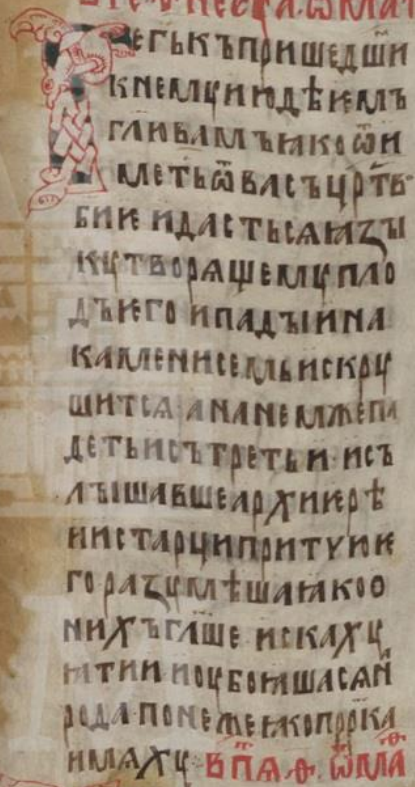 Рєчє гь къ пришєдши
к нємꙋ июдѣѥмъ
гл҃ю вамъ ꙗко ѿи
мєть ѿ васъ црт҃в
биѥ и дастьсѧ ꙗзꙑ
кꙋ творѧщємꙋ пло
дъ ѥго и падꙑи на
камєни сємь искрꙋ
шитсѧ а на нємжє па
дєть истрєтьи и исъ
лꙑшавшє архиѥрѣ
и и старци притчи ѥ
го разꙋмѣша ꙗко о
нихъ гл҃шє искахꙋ
ꙗти и и ꙋбоꙗшасѧ н
рода понєжє ꙗко прр҃ка
имѧхꙋ в пѧ ѳ ѿ ма